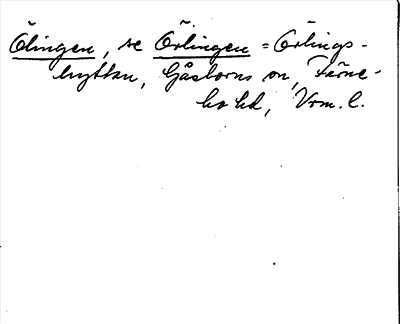 Ölingen, se Örlingen = Örlings-
hyttan, Gåsborns sn, Färne-
bo hd, Vrm. l.